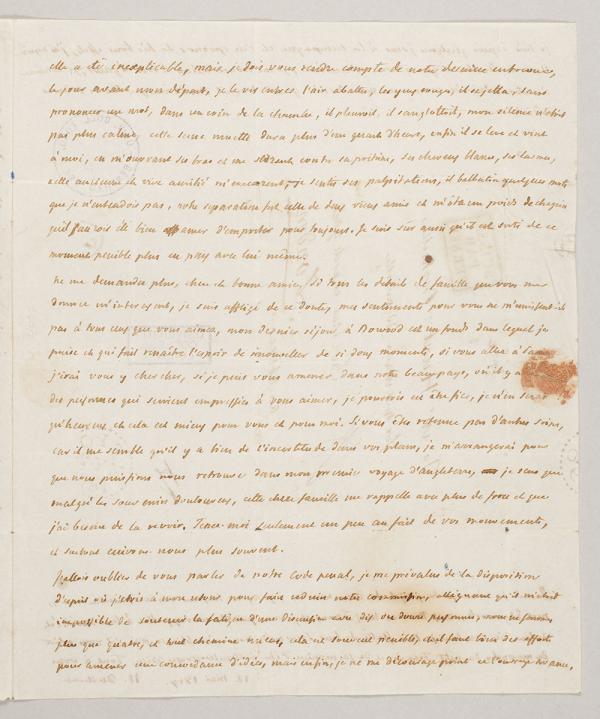 elle a été inexplicable, mais je dois vous rendre compte de notre dernière entrevue,
le jour avant mon départ, je le vis entrer l'air abattu, les yeux rouges, il se jetta, sans
prononcer un mot, dans un coin de la chambre, il pleuroit, il sanglottoit, mon silence n'étoit
pas plus calme, cette scene muette dura plus d'un quart d'heure, enfin il se leve et vint
à moi, en m'ouvrant ses bras et me serrant contre sa poitrine, ses cheveux blancs, ses larmes,
cette ancienne et vive amitié je sentis ses palpitations, il balbutia quelques mots
que je n'entendois pas, notre separation fut celle de deux vieux amis et m'ôta un poids de chagrin
qu'il m'auroit été bien amer d'emporter pour toujours. Je suis sûr aussi qu'il est sorti de ce
moment penible plus en paix avec lui même.
Ne me demandez plus, chere et bonne amie, si tous les détails de famille que vous me
donnez m'interessent, je suis affligé de ce doute, mes sentimens pour vous ne m'unissent-ils
pas à tous ceux que vous aimez, mon dernier séjour à Bowood est un fonds dans lequel je
puise et qui fait renaître l'espoir de renouveller de si doux momens, si vous allez à
j'irai vous y chercher, si je puis vous amener dans notre beau pays, où il y a
des personnes qui seroient empressées à vous aimer, je pourrois en être fier, je n'en serai
qu'heureux et cela est mieux pour vous et pour moi. Si vous êtes retenue par d'autres soins,
car il me semble qu'il y a bien de l'incertitude dans vos plans, je m'arrangerai pour
que nous puissions nous retrouver dans mon premier voyage d'Angleterre, je sens que
malgré les souvenirs douloureux, cette chere famille me rappelle avec plus de force et que
j'ai besoin de la revoir. Tenez-moi seulement un peu au fait de vos mouvements,
et surtout ecrivons nous plus souvent.
J'allois oublier de vous parler de notre code penal, je me prévalus de la disposition
d'esprit où j'étois à mon retour pour faire reduire notre commission, alléguant qu'il m'étoit
impossible de soutenir la fatigue d'une discussion avec dix ou douze personnes, nous ne sommes
plus que quatre, et nous cheminons mieux, cela ne sauroit penible, et il faut bien des efforts
pour amener une concordance d'idées, mais enfin, je ne me décourage point et l'ouvrage avance,